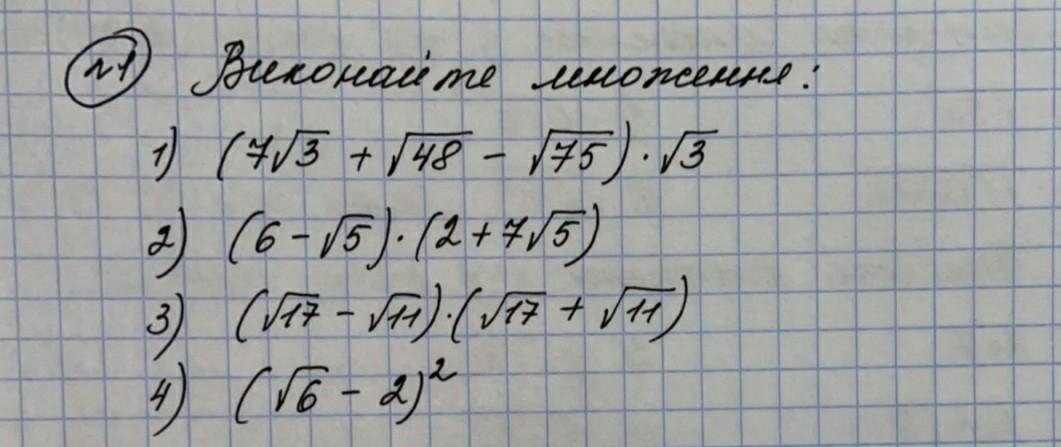 №1 Виконайте множення:
1) (7√3 + √48 - √75) · √3
2) (6 - √5) · (2 + 7√5)
3) (√17 - √11) · (√17 + √11)
4) (√6 - 2)²